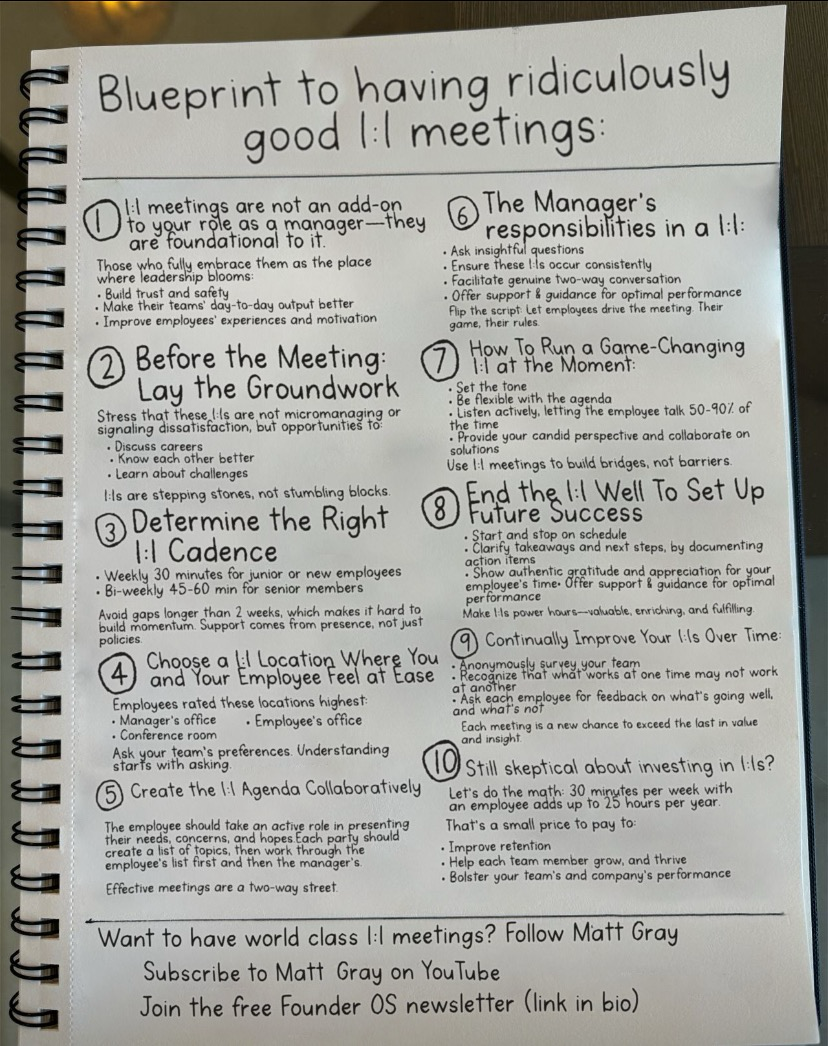 Blueprint to having ridiculously
good 1:1 meetings:
1
1:1 meetings are not an add-on
to your role as a manager—they
are foundational to it.
Those who fully embrace them as the place
where leadership blooms:
• Build trust and safety
• Make their teams' day-to-day output better
• Improve employees' experiences and motivation
2
Before the Meeting:
Lay the Groundwork
Stress that these 1:1s are not micromanaging or
signaling dissatisfaction, but opportunities to:
• Discuss careers
• Know each other better
• Learn about challenges
1:1s are stepping stones, not stumbling blocks.
3
Determine the Right
1:1 Cadence
• Weekly 30 minutes for junior or new employees
• Bi-weekly 45-60 min for senior members
Avoid gaps longer than 2 weeks, which makes it hard to
build momentum. Support comes from presence, not just
policies.
4
Choose a 1:1 Location Where You
and Your Employee Feel at Ease
Employees rated these locations highest:
• Manager's office • Employee's office
• Conference room
Ask your team's preferences. Understanding
starts with asking.
5
Create the 1:1 Agenda Collaboratively
The employee should take an active role in presenting
their needs, concerns, and hopes.Each party should
create a list of topics, then work through the
employee's list first and then the manager's.
Effective meetings are a two-way street.
6
The Manager's
responsibilities in a 1:1:
• Ask insightful questions
• Ensure these 1:1s occur consistently
• Facilitate genuine two-way conversation
• Offer support & guidance for optimal performance
Flip the script: Let employees drive the meeting. Their
game, their rules.
7
How To Run a Game-Changing
1:1 at the Moment:
• Set the tone
• Be flexible with the agenda
• Listen actively, letting the employee talk 50-90% of
the time
• Provide your candid perspective and collaborate on
solutions
Use 1:1 meetings to build bridges, not barriers.
8
End the 1:1 Well To Set Up
Future Success
• Start and stop on schedule
• Clarify takeaways and next steps, by documenting
action items
• Show authentic gratitude and appreciation for your
employee's time• Offer support & guidance for optimal
performance
Make 1:1s power hours—valuable, enriching, and fulfilling.
9
Continually Improve Your 1:1s Over Time:
• Anonymously survey your team
• Recognize that what works at one time may not work
at another
• Ask each employee for feedback on what's going well,
and what's not
Each meeting is a new chance to exceed the last in value
and insight.
10
Still skeptical about investing in 1:1s?
Let's do the math: 30 minutes per week with
an employee adds up to 25 hours per year.
That's a small price to pay to:
• Improve retention
• Help each team member grow, and thrive
• Bolster your team's and company's performance
Want to have world class 1:1 meetings? Follow Matt Gray
Subscribe to Matt Gray on YouTube
Join the free Founder OS newsletter (link in bio)